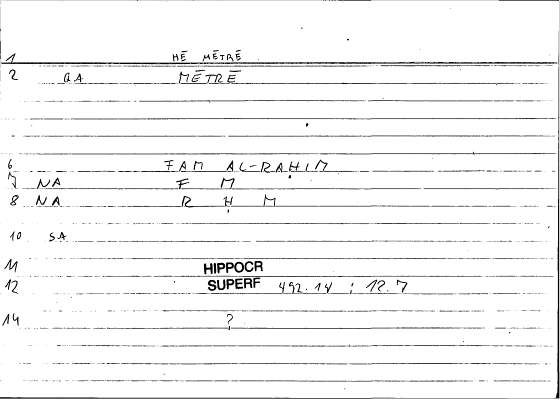 1 HĒ MĒTRĒ
2 GA MĒTRĒ
6 FAM AL-RAḤIM
7 NA F M
8 NA R Ḥ M
10 SA
11 HIPPOCR
12 SUPERF 492.14 ; 12.7
14 ?